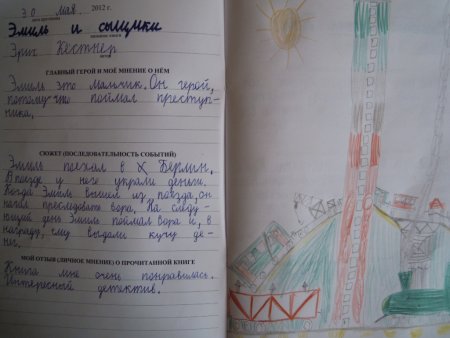 30 мая 2012 г.
Эмиль и сыщики
Эрих Кестнер
ГЛАВНЫЙ ГЕРОЙ И МОЁ МНЕНИЕ О НЁМ
Эмиль это мальчик. Он герой,
потому что поймал преступ-
ника.
СЮЖЕТ (ПОСЛЕДОВАТЕЛЬНОСТЬ СОБЫТИЙ)
Эмиль поехал в Берлин.
В поезде у него украли деньги.
Когда Эмиль вышел из поезда, он
начал преследовать вора. На следу-
ющий день Эмиль поймал вора и, в
награду, ему выдали кучу де-
нег.
МОЙ ОТЗЫВ (ЛИЧНОЕ МНЕНИЕ) О ПРОЧИТАННОЙ КНИГЕ
Книга мне очень понравилась.
Интересный детектив.